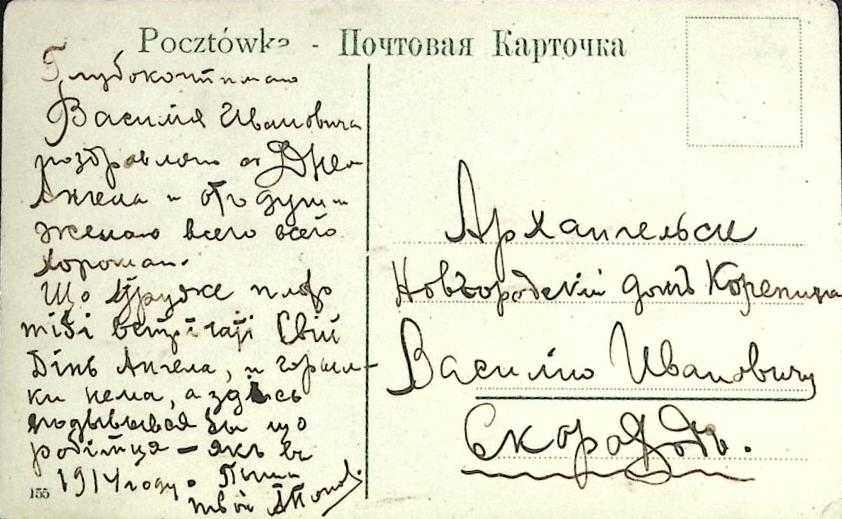 Pocztówka - Почтовая Карточка
Глубокочтимаю
Василия Ивановича
поздравляю со Днем
Ангела и отъ души
желаю всего всего
хорошаго.
Що друже
тібі встрічаті Свій
Дінь Ангела, и горыл-
ки нема, а здѣсь
подывывся бы що
робітця — якъ въ
1914 году. Пиши
твой
155
Архангельск
Новгородскій домъ Корепина
Василію Ивановичу
Скороходъ.